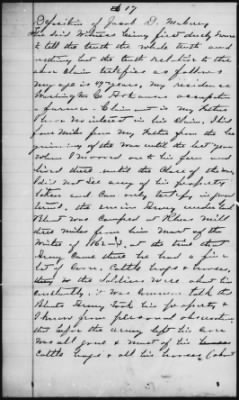 17
Deposition of Jacob D. Mabury
The said Witness being first duly sworn
to tell the truth the whole truth and
nothing but the truth relative to the
above Claim testifies as follows
My age is years, my residence
Washington Co Arkansas occupation
a farmer. Claimant is my Father
I have no interest in his Claim. I lived
four miles from my Father from the be
ginning of the War until the last year
when I mooved on to his farm and
lived there until the Close of the war
I did not see any of his property
taken and Can only testify in
the union Army under Genl
Blunt was Camped at Rheas Mill
three miles from him Most of the
Winter of 1862 at the time that
Army Came there he had a fine
lot of Corn, Cattle hogs & horses,
& the Soldiers were about his
Constantly. it was Common talk that
Blunts Army took his property &
I know from personal observation
that before the army left his Corn
was all gone & most of his
Cattle hogs & all his horses (about